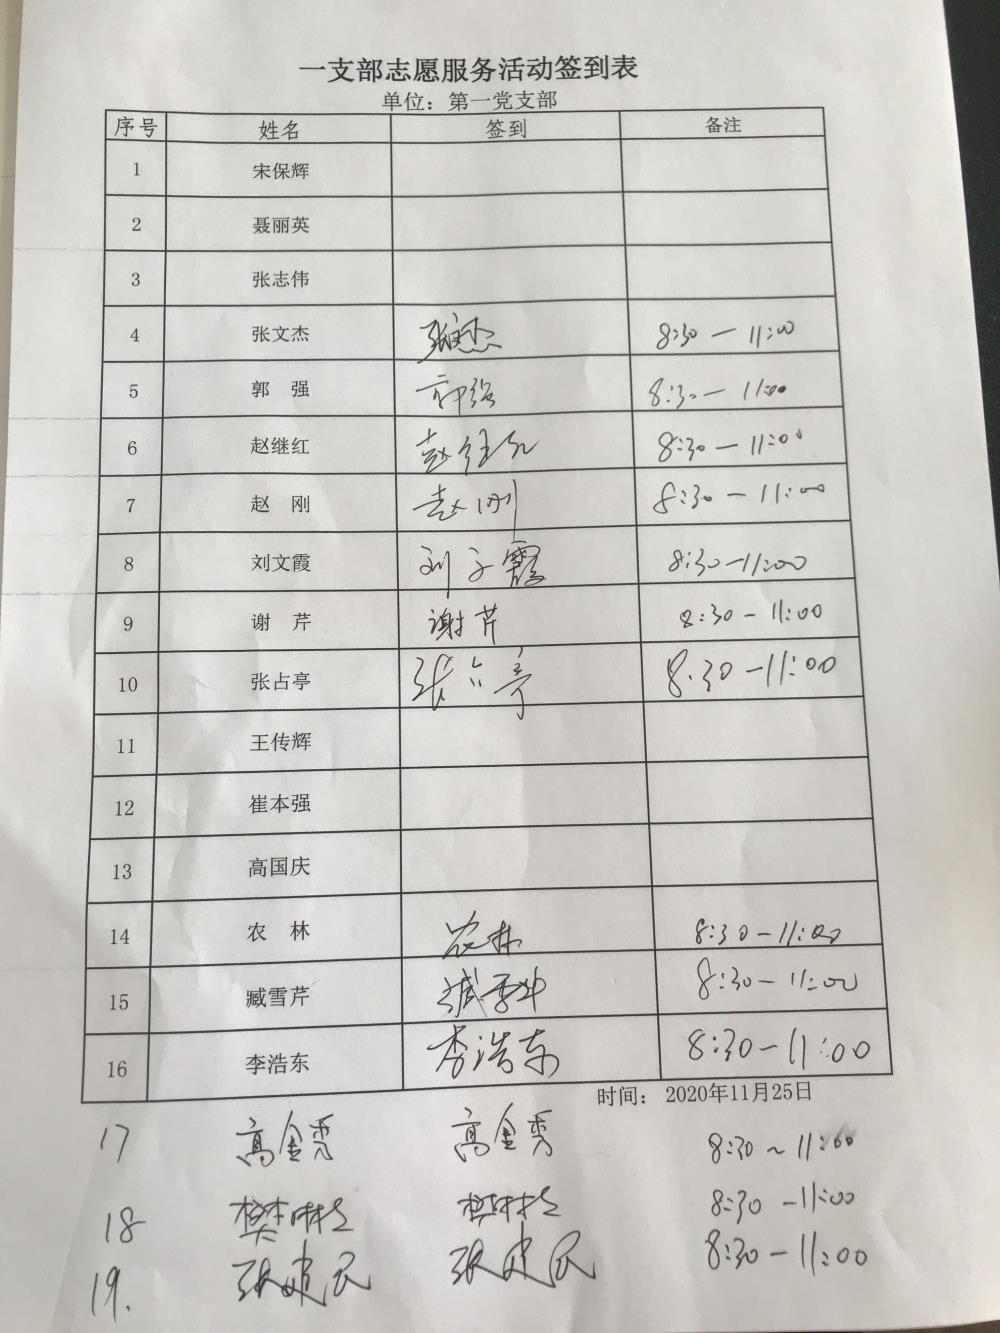 一支部志愿服务活动签到表
单位：第一党支部
序号 姓名 签到 备注
1 宋保辉
2 聂丽英
3 张志伟
4 张文杰 张文杰 8:30—11:00
5 郭 强 郭强 8:30—11:00
6 赵继红 赵继红 8:30—11:00
7 赵 刚 赵刚 8:30—11:00
8 刘文霞 刘文霞 8:30—11:00
9 谢 芹 谢芹 8:30—11:00
10 张占亭 张占亭 8:30—11:00
11 王传辉
12 崔本强
13 高国庆
14 农 林 农林 8:30—11:00
15 臧雪芹 臧雪芹 8:30—11:00
16 李浩东 李浩东 8:30—11:00
时间： 2020年11月25日
17 高金秀 高金秀 8:30~11:00
18 8:30—11:00
19. 张建民 张建民 8:30—11:00